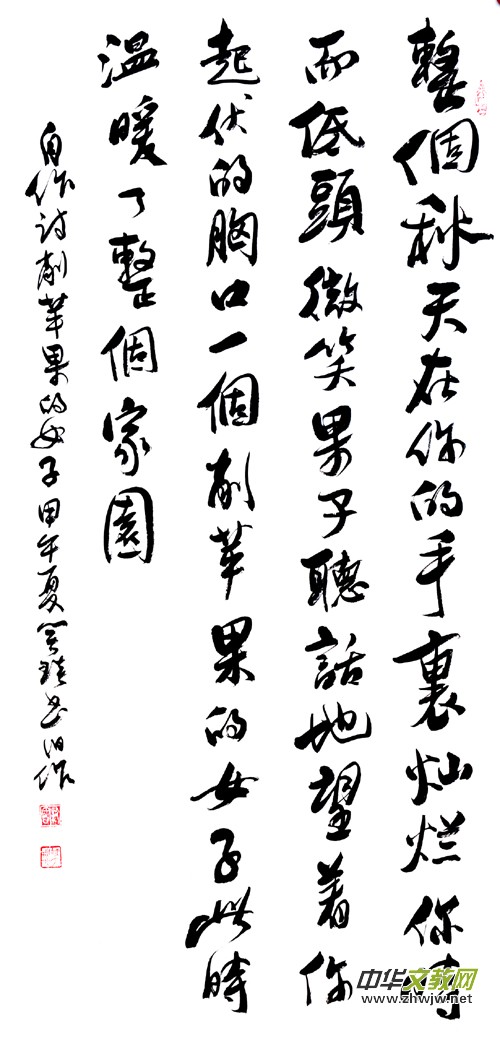 整個秋天在你的手裏灿烂你時
而低頭微笑果子聽話地望着你
起伏的胸口一個削苹果的女子此時
温暖了整個家園
自作诗削苹果的女子甲午夏书旧作
中华文教网
www.zhwjw.net